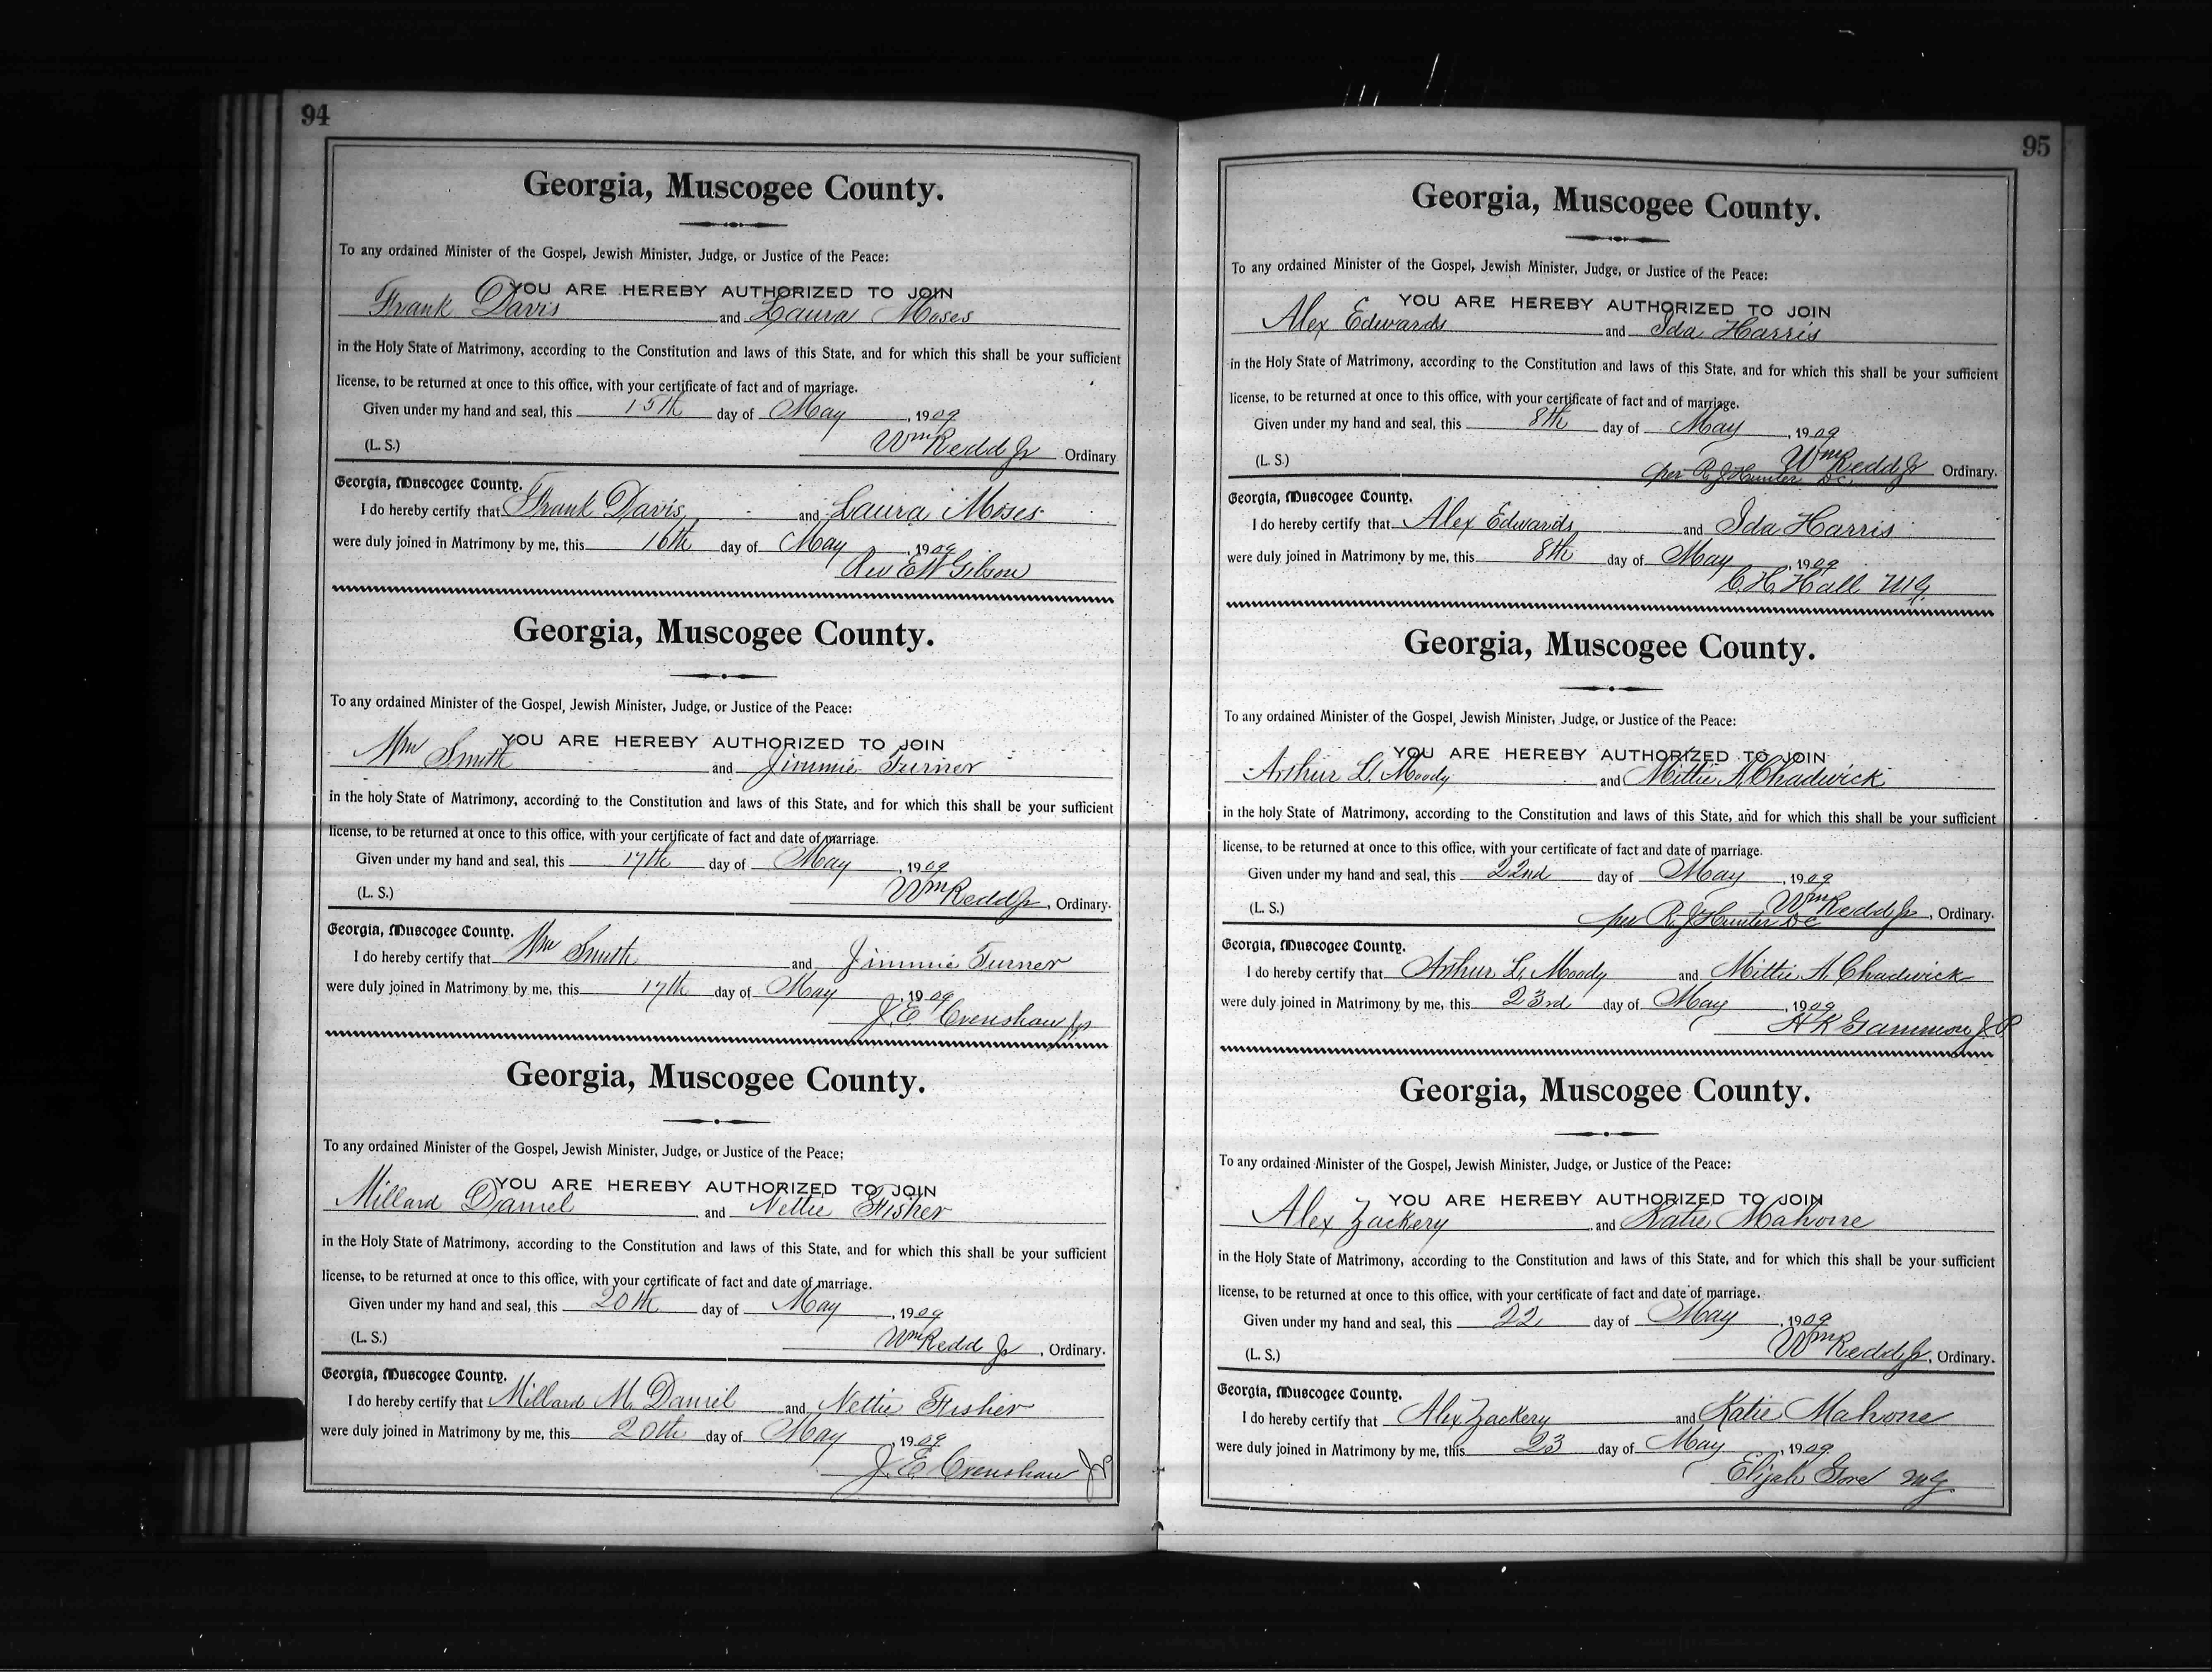 94
Georgia, Muscogee County.
To any ordained Minister of the Gospel, Jewish Minister, Judge, or Justice of the Peace:
YOU ARE HEREBY AUTHORIZED TO JOIN
Frank Davis and Laura Moses
in the Holy State of Matrimony, according to the Constitution and laws of this State, and for which this shall be your sufficient
license, to be returned at once to this office, with your certificate of fact and of marriage.
Given under my hand and seal, this 15th day of May, 1909
(L. S.) Wm Redd Jr Ordinary
Georgia, Muscogee County.
I do hereby certify that Frank Davis and Laura Moses
were duly joined in Matrimony by me, this 16th day of May, 1909
Rev E W Gibson
Georgia, Muscogee County.
To any ordained Minister of the Gospel, Jewish Minister, Judge, or Justice of the Peace:
YOU ARE HEREBY AUTHORIZED TO JOIN
Wm Smith and Jimmie Turner
in the holy State of Matrimony, according to the Constitution and laws of this State, and for which this shall be your sufficient
license, to be returned at once to this office, with your certificate of fact and date of marriage.
Given under my hand and seal, this 17th day of May, 1909
(L. S.) Wm Redd Jr, Ordinary.
Georgia, Muscogee County.
I do hereby certify that Wm Smith and Jimmie Turner
were duly joined in Matrimony by me, this 17th day of May, 1909
J. E. Crenshaw Jp.
Georgia, Muscogee County.
To any ordained Minister of the Gospel, Jewish Minister, Judge, or Justice of the Peace:
YOU ARE HEREBY AUTHORIZED TO JOIN
Millard Daniel and Nettie Fisher
in the Holy State of Matrimony, according to the Constitution and laws of this State, and for which this shall be your sufficient
license, to be returned at once to this office, with your certificate of fact and date of marriage.
Given under my hand and seal, this 20th day of May, 1909
(L. S.) Wm Redd Jr, Ordinary.
Georgia, Muscogee County.
I do hereby certify that Millard M. Daniel and Nettie Fisher
were duly joined in Matrimony by me, this 20th day of May, 1909
J. E. Crenshaw JP
95
Georgia, Muscogee County.
To any ordained Minister of the Gospel, Jewish Minister, Judge, or Justice of the Peace:
YOU ARE HEREBY AUTHORIZED TO JOIN
Alex Edwards and Ida Harris
in the Holy State of Matrimony, according to the Constitution and laws of this State, and for which this shall be your sufficient
license, to be returned at once to this office, with your certificate of fact and of marriage.
Given under my hand and seal, this 8th day of May, 1909
(L. S.) Wm Redd Jr Ordinary.
per R. J. Hunter DC.
Georgia, Muscogee County.
I do hereby certify that Alex Edwards and Ida Harris
were duly joined in Matrimony by me, this 8th day of May, 1909
C. H. Hall M G.
Georgia, Muscogee County.
To any ordained Minister of the Gospel, Jewish Minister, Judge, or Justice of the Peace:
YOU ARE HEREBY AUTHORIZED TO JOIN
Arthur L. Moody and Mittie A. Chadwick
in the holy State of Matrimony, according to the Constitution and laws of this State, and for which this shall be your sufficient
license, to be returned at once to this office, with your certificate of fact and date of marriage.
Given under my hand and seal, this 22nd day of May, 1909
(L. S.) Wm Redd Jr, Ordinary.
per R. J. Hunter DC
Georgia, Muscogee County.
I do hereby certify that Arthur L. Moody and Mittie A. Chadwick
were duly joined in Matrimony by me, this 23rd day of May, 1909
H K Gammon J. P.
Georgia, Muscogee County.
To any ordained Minister of the Gospel, Jewish Minister, Judge, or Justice of the Peace:
YOU ARE HEREBY AUTHORIZED TO JOIN
Alex Zackery and Katie Mahone
in the Holy State of Matrimony, according to the Constitution and laws of this State, and for which this shall be your sufficient
license, to be returned at once to this office, with your certificate of fact and date of marriage.
Given under my hand and seal, this 22 day of May, 1909
(L. S.) Wm Redd Jr, Ordinary.
Georgia, Muscogee County.
I do hereby certify that Alex Zackery and Katie Mahone
were duly joined in Matrimony by me, this 23 day of May, 1909
Elijah Gore M G